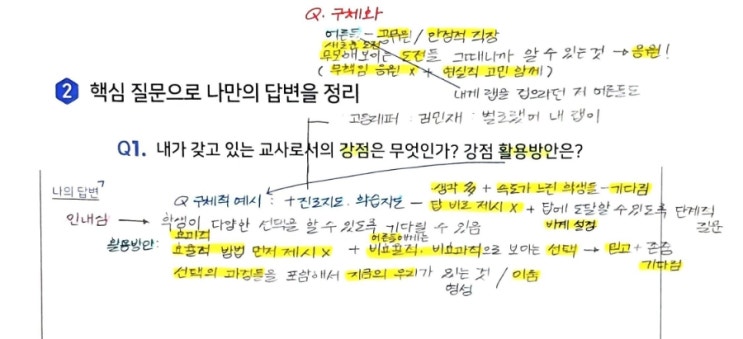 Q. 구체화
어른들 - 공무원 / 안정적 직장
새로운 도전
무모해보이는 도전들 그때니까 알 수 있는 것 → 응원!
(무책임 응원 X + 현실적 고민 함께)
내게 랩을 접으라던 저 어른들도
고등래퍼 : 김민재 :
내 랩이
2 핵심 질문으로 나만의 답변을 정리
Q1. 내가 갖고 있는 교사로서의 강점은 무엇인가? 강점 활용방안은?
나의 답변
Q 구체적 예시 : + 진로지도. 학습지도 - 생각 多 + 속도가 느린 학생들 - 기다림
답 바로 제시 X + 답에 도달할 수 있도록 단계적 질문
인내심 → 학생이 다양한 선택을 할 수 있도록 기다릴 수 있음
활용방안: 효과적
효율적 방법 먼저 제시 X + 어른들에게는 비효율적, 비효과적으로 보이는 선택 → 믿고 + 존중
기다림
선택의 과정들을 포함해서 지금의 우리가 있는 것 / 이룸
형성